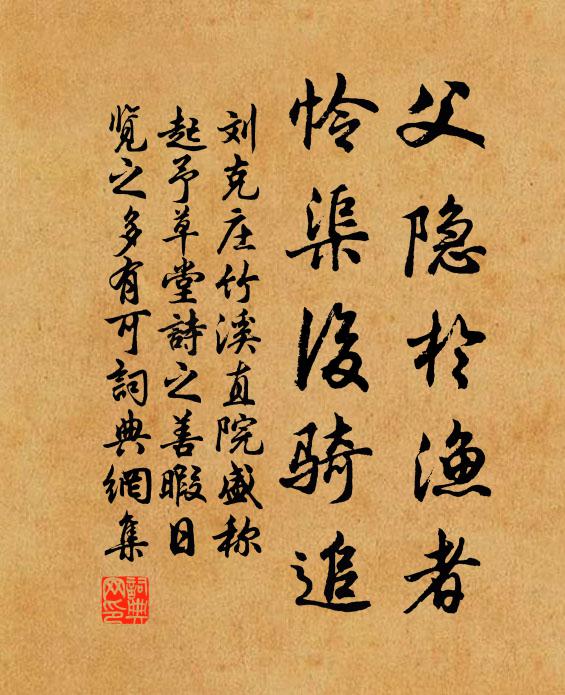 父隐於渔者
怜渠後骑追
刘克庄竹溪直院盛称
起予草堂詩之善暇日
览之多有可詞典網集
詞典网印